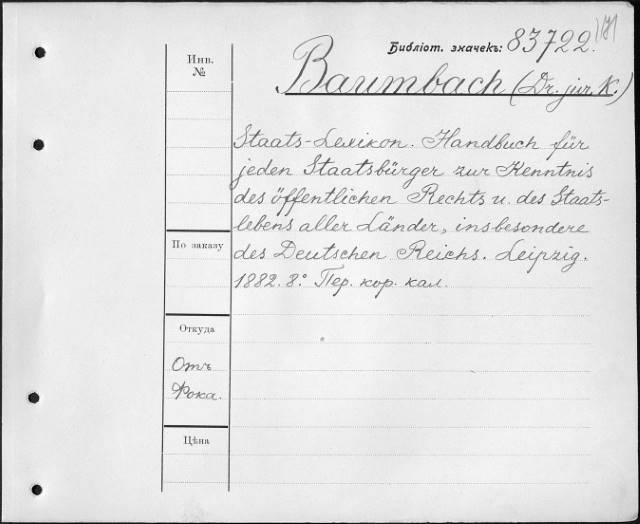 Библіот. значекъ: 83722.
Инв.
№
Baumbach (Dr. jur. K.)
Staats-Lexikon. Handbuch für
jeden Staatsbürger zur Kenntnis
des öffentlichen Rechts u. des Staats-
lebens aller Länder, insbesondere
des Deutschen Reichs. Leipzig.
1882. 8.° Пер. кор. кал.
По заказу
Откуда
Отъ
Фока.
Цѣна